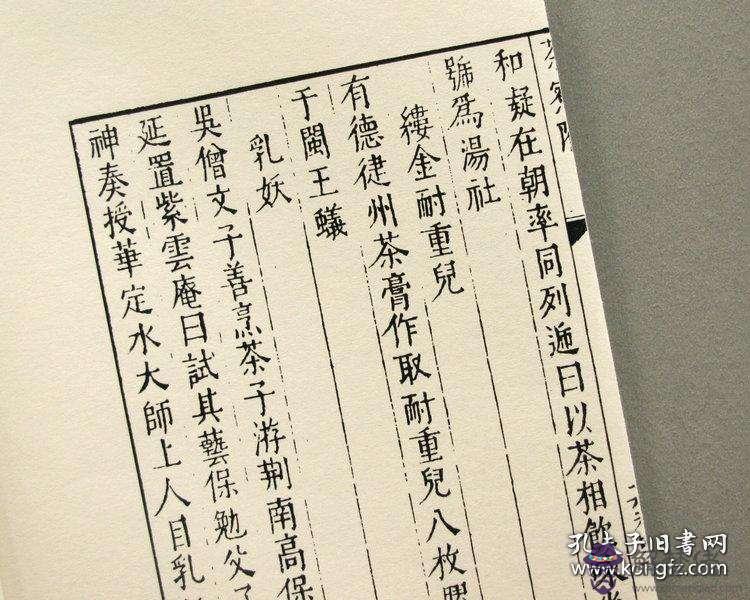 和凝在朝率同列遞日以茶相飲
號爲湯社
縷金耐重兒
有德徤州茶膏作取耐重兒八枚
于閩王蟻
乳妖
吳僧文子善烹茶子游荆南高保
延置紫雲庵日試其藝保勉父子
神奏授華定水大師上人目乳
孔夫子旧書网
www.kongfz.com